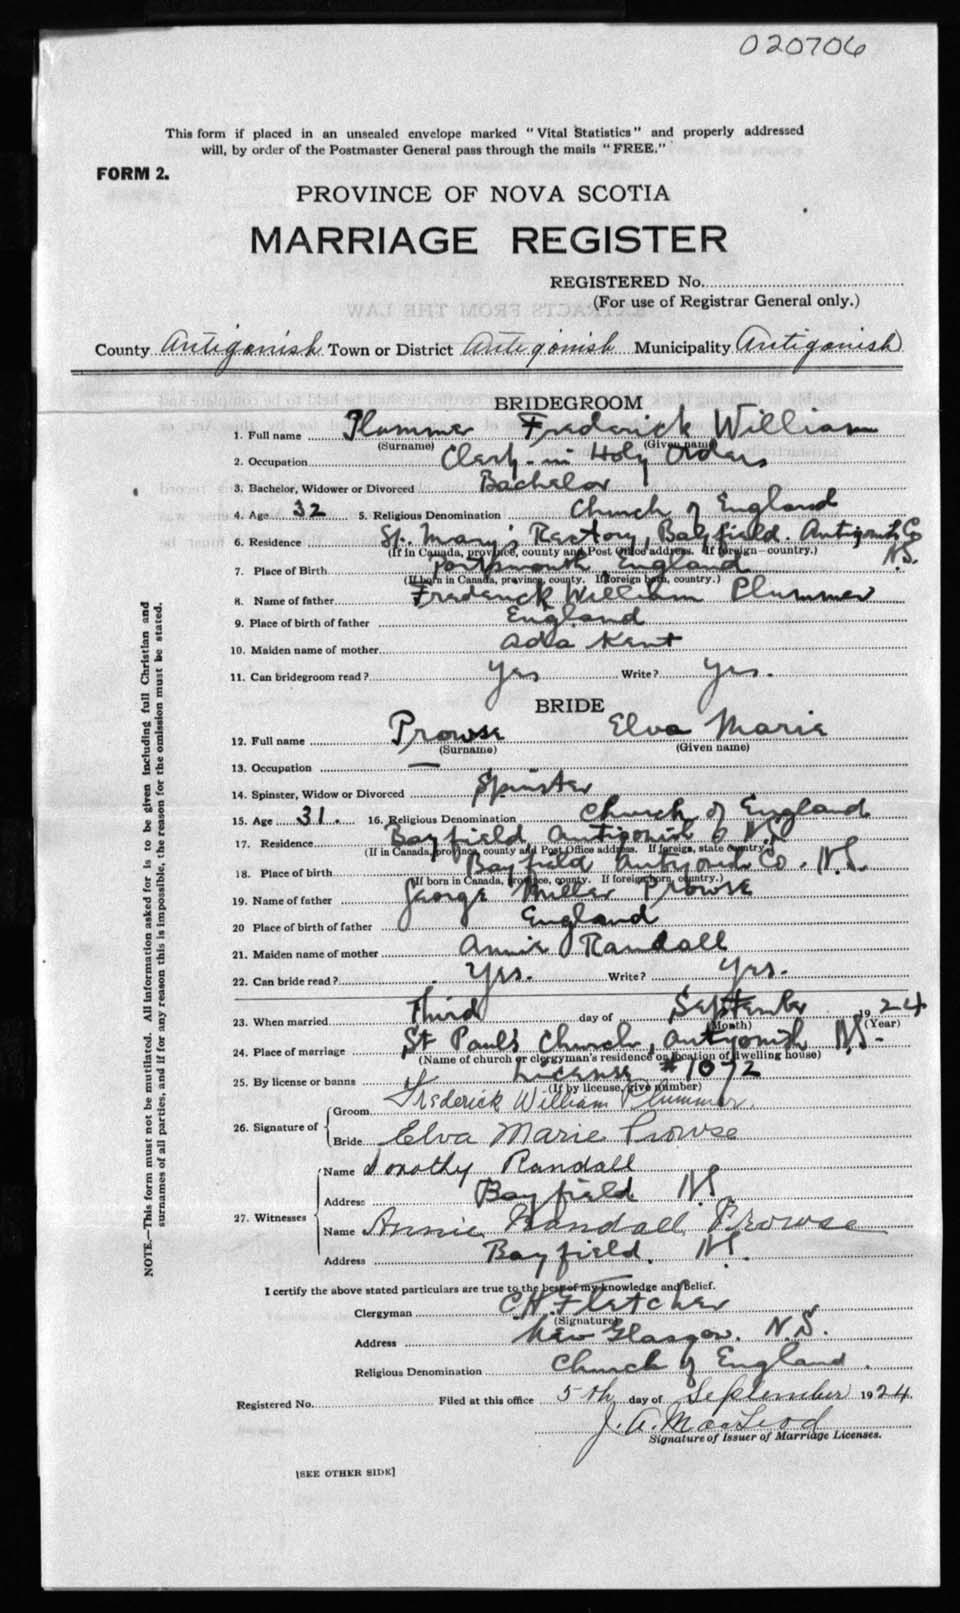 020706
This form if placed in an unsealed envelope marked "Vital Statistics" and properly addressed
will, by order of the Postmaster General pass through the mails "FREE."
FORM 2.
PROVINCE OF NOVA SCOTIA
MARRIAGE REGISTER
REGISTERED No.
(For use of Registrar General only.)
County Antigonish Town or District Antigonish Municipality Antigonish
BRIDEGROOM
1. Full name Plummer Frederick William
(Surname) (Given name)
2. Occupation Clerk in Holy Orders
3. Bachelor, Widower or Divorced Bachelor
4. Age 32 5. Religious Denomination Church of England
6. Residence St. Mary's Rectory, Bayfield. Antigonish Co N.S.
(If in Canada, province, county and Post Office address. If foreign—country.)
7. Place of Birth Portsmouth, England
(If born in Canada, province, county. If foreign born, country.)
8. Name of father Frederick William Plummer
9. Place of birth of father England
10. Maiden name of mother Ada Kent
11. Can bridegroom read? Yes Write? Yes.
BRIDE
12. Full name Prowse Elva Marie
(Surname) (Given name)
13. Occupation —
14. Spinster, Widow or Divorced Spinster
15. Age 31. 16. Religious Denomination Church of England
17. Residence Bayfield Antigonish Co N.S.
(If in Canada, province, county and Post Office address. If foreign, state country.)
18. Place of birth Bayfield Antigonish Co. N.S.
(If born in Canada, province, county. If foreign born, country.)
19. Name of father George Miller Prowse
20 Place of birth of father England
21. Maiden name of mother Annie Randall
22. Can bride read? Yes. Write? Yes.
23. When married Third day of September 1924
(Month) (Year)
24. Place of marriage St Paul's Church, Antigonish N.S.
(Name of church or clergyman's residence or location of dwelling house)
25. By license or banns License #1072
(If by license, give number)
26. Signature of Groom Frederick William Plummer.
Bride Elva Marie Prowse
27. Witnesses Name Dorothy Randall
Address Bayfield N.S.
Name Annie Randall Prowse
Address Bayfield. N.S.
I certify the above stated particulars are true to the best of my knowledge and belief.
Clergyman C.H. Fletcher
(Signature)
Address New Glasgow. N.S.
Religious Denomination Church of England.
Registered No. Filed at this office 5th day of September 1924.
J. A. MacLeod
Signature of Issuer of Marriage Licenses.
[SEE OTHER SIDE]
NOTE.—This form must not be mutilated. All information asked for is to be given including full Christian and
surnames of all parties, and if for any reason this is impossible, the reason for the omission must be stated.